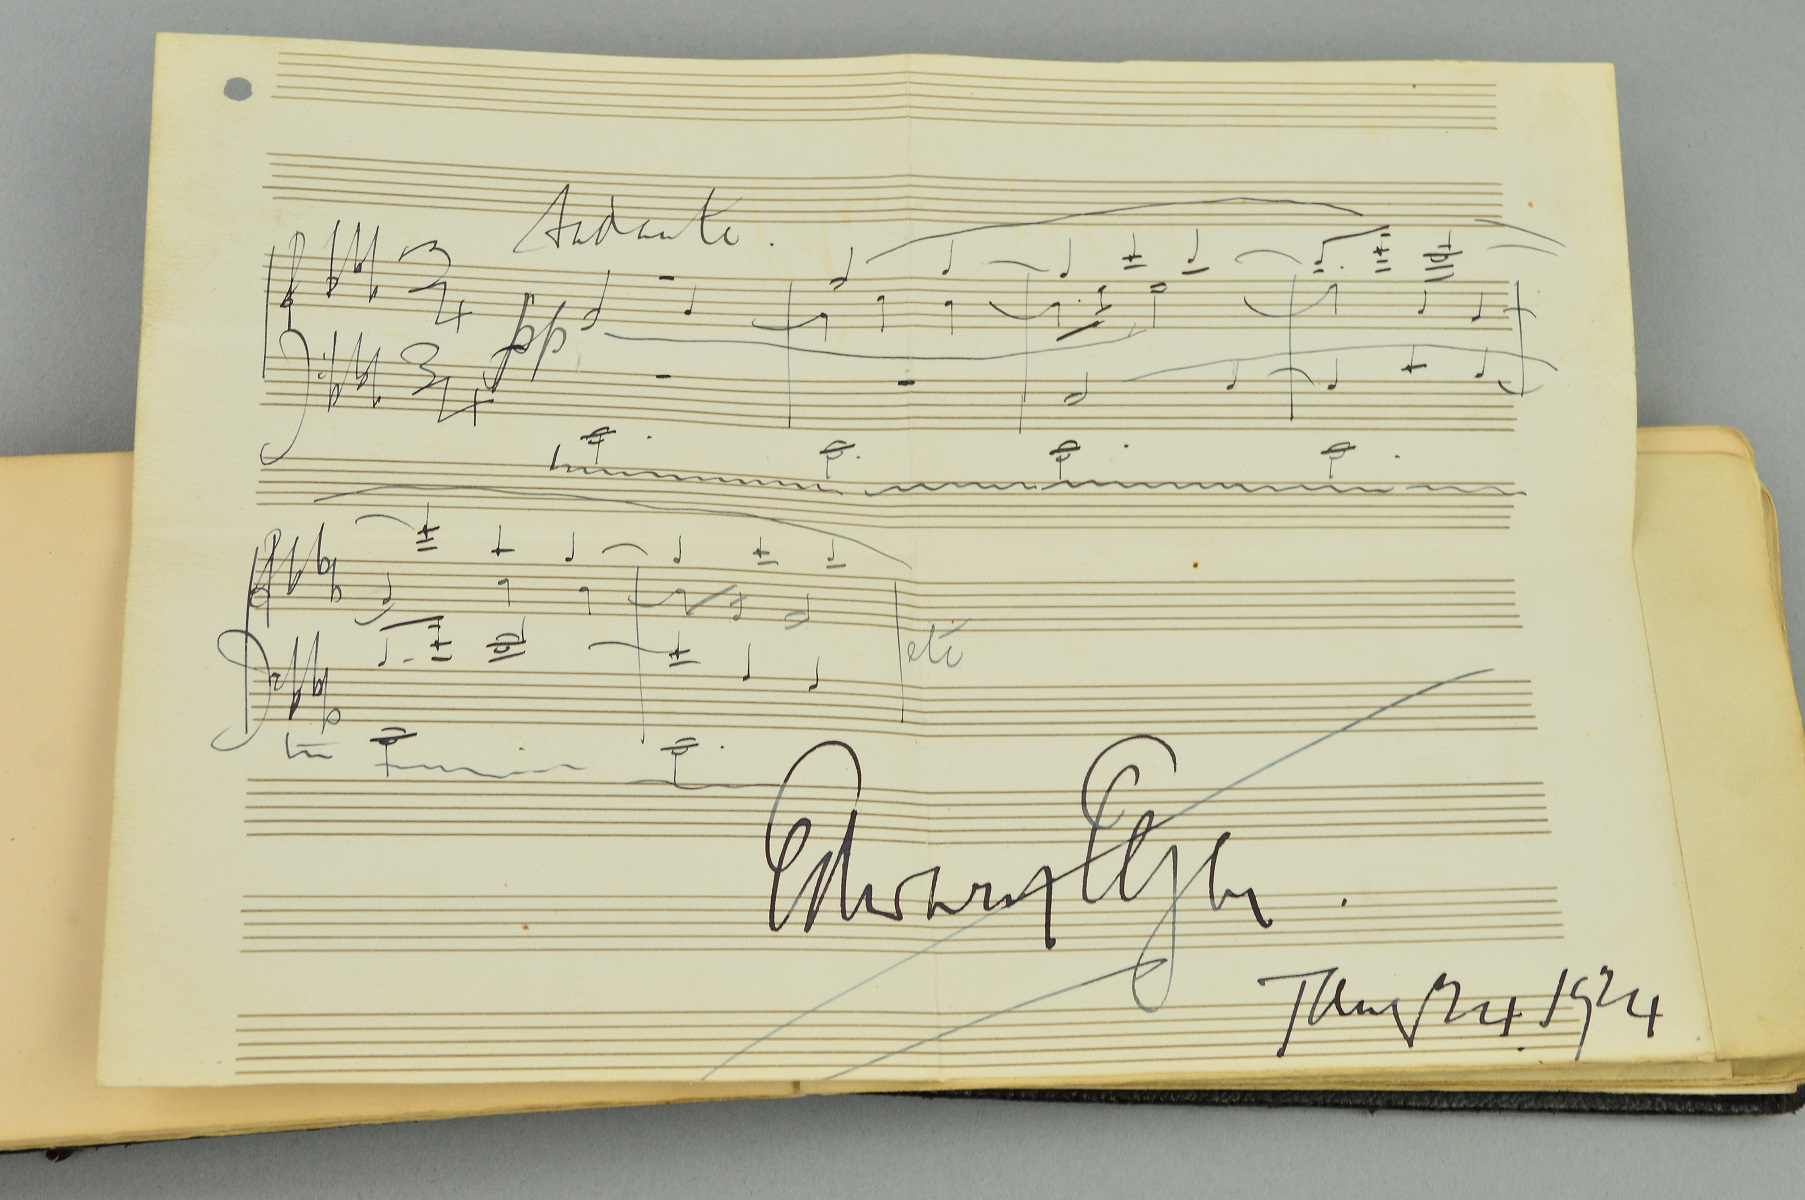 Andante.
3
4
pp
3
4
etc
Edward Elgar.
Jany 24. 1924